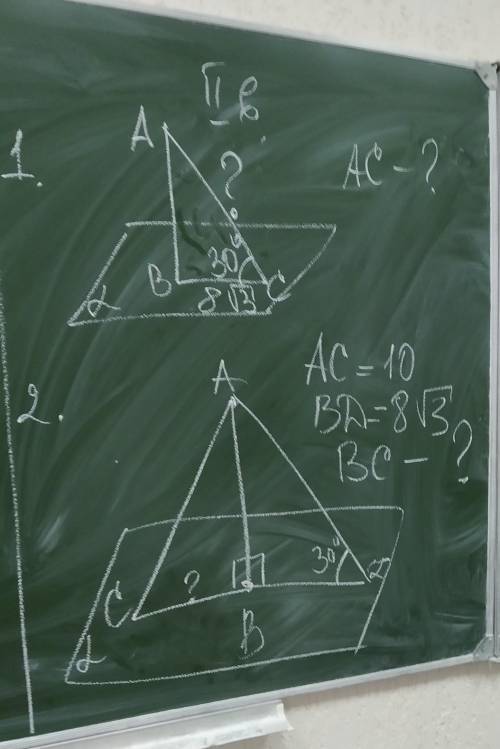 II в.
1.
A
?
AC - ?
30°
B
C
8√3
α
2.
A
AC = 10
BД = 8√3
BC - ?
30°
?
C
Д
B
α